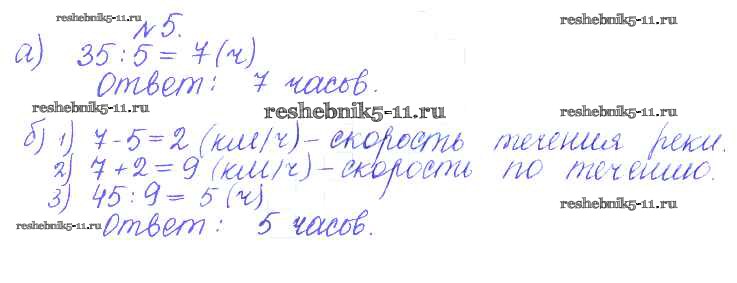 reshebnik5-11.ru
reshebnik5-11.ru
№5.
а) 35:5 = 7 (ч)
Ответ: 7 часов.
reshebnik5-11.ru
reshebnik5-11.ru
reshebnik5-11.ru
б) 1) 7-5=2 (км/ч) – скорость течения реки.
2) 7+2=9 (км/ч) – скорость по течению.
3) 45:9 = 5 (ч)
reshebnik5-11.ru
reshebnik5-11.ru
Ответ: 5 часов.